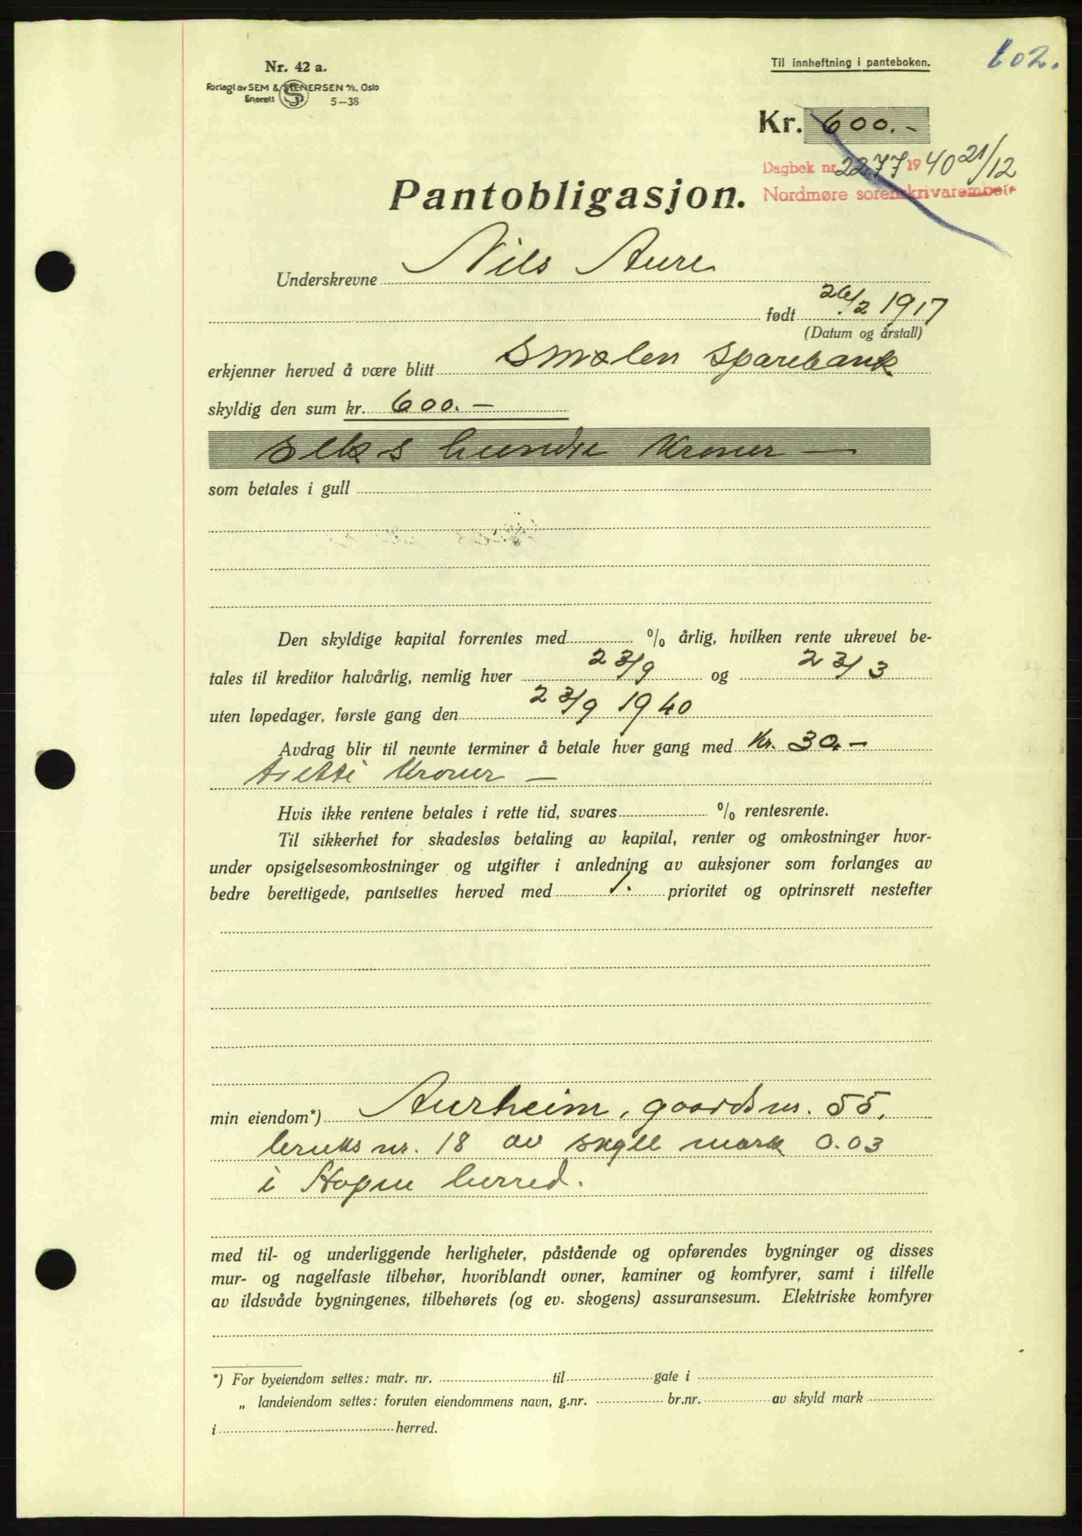 Nr. 42 a.
Forlagt av SEM & STENERSEN A/S, Oslo
Enerett 5-38
Til innheftning i panteboken.
602.
Kr. 600.-
Dagbok nr. 2277 1940 21/12
Nordmøre sorenskrivarembete
Pantobligasjon.
Underskrevne Nils Aure
født 26/2 1917
(Datum og årstall)
erkjenner herved å være blitt Smølen Sparebank
skyldig den sum kr. 600.-
seks hundre Kroner —
som betales i gull
Den skyldige kapital forrentes med % årlig, hvilken rente ukrevet be-
tales til kreditor halvårlig, nemlig hver 23/9 og 23/3
uten løpedager, første gang den 23/9 1940
Avdrag blir til nevnte terminer å betale hver gang med Kr. 30.-
tretti Kroner —
Hvis ikke rentene betales i rette tid, svares % rentesrente.
Til sikkerhet for skadesløs betaling av kapital, renter og omkostninger hvor-
under opsigelsesomkostninger og utgifter i anledning av auksjoner som forlanges av
bedre berettigede, pantsettes herved med 1. prioritet og optrinsrett nestefter
min eiendom*) Aurheim, gaardsnr. 55,
bruks nr. 18 av skyll mark 0.03
i Hopen herred.
med til- og underliggende herligheter, påstående og opførendes bygninger og disses
mur- og nagelfaste tilbehør, hvoriblandt ovner, kaminer og komfyrer, samt i tilfelle
av ildsvåde bygningenes, tilbehørets (og ev. skogens) assuransesum. Elektriske komfyrer
*) For byeiendom settes: matr. nr. til gate i
„ landeiendom settes: foruten eiendommens navn, g.nr. br.nr. av skyld mark
i herred.